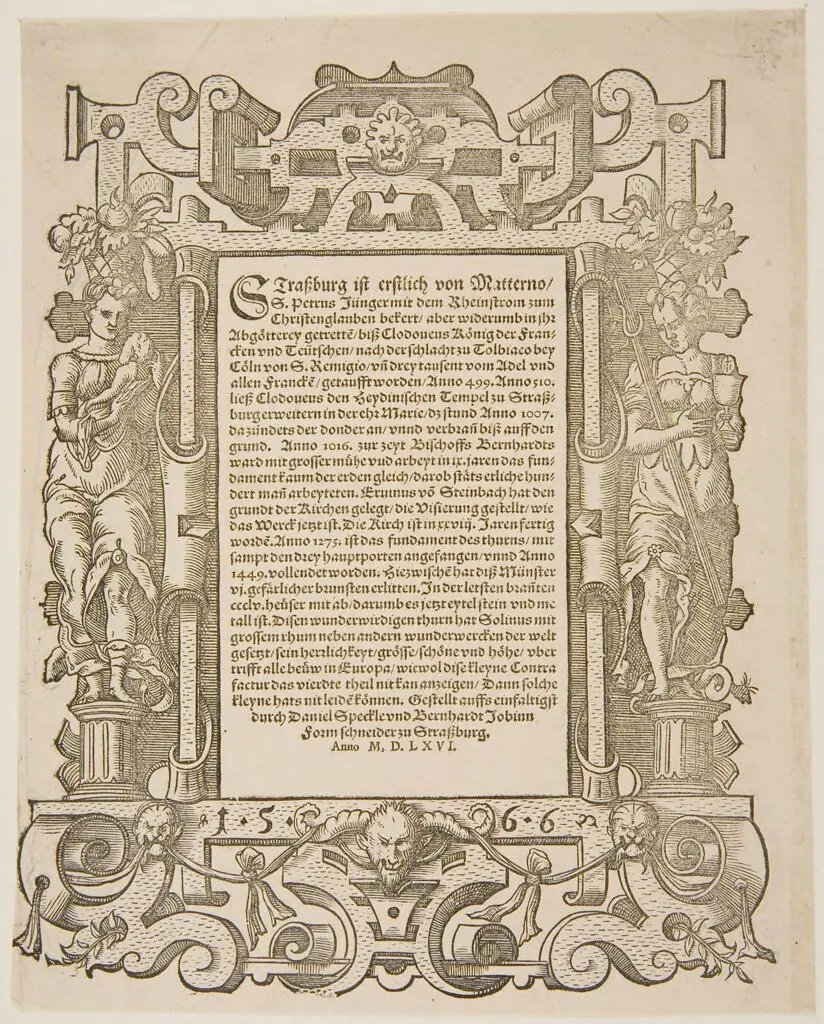 STraßburg ist erstlich von Matterno/
S. Petrus Jünger mit dem Rheinstrom zum
Christenglauben bekert/ aber widerumb in jhr
Abgötterey getrettẽ/ biß Clodoueus König der Fran-
cken vnd Teütschen/ nach der schlacht zu Tolbiaco bey
Cöln von S. Remigio/ vñ drey tausent vom Adel vnd
allen Franckẽ/ getaufft worden/ Anno 499. Anno 510.
ließ Clodoueus den Heydinischen Tempel zu Straß-
burg erweitern in der ehr Marie/ dz stund Anno 1007.
da zündets der donder an/ vnnd verbrañ biß auff den
grund. Anno 1016. zur zeyt Bischoffs Bernhardts
ward mit grosser mühe vud arbeyt in ix. jaren das fun-
dament kaum der erden gleich/ darob stäts etliche hun-
dert mañ arbeyteten. Eruinus võ Steinbach hat den
grundt der Kirchen gelegt/ die Visierung gestellt/ wie
das Werck jetzt ist. Die Kirch ist in xxviij. Jaren fertig
wordẽ. Anno 1275. ist das fundament des thurns/ mit
sampt den drey hauptporten angefangen/ vnnd Anno
1449. vollendet worden. Hiezwischẽ hat diß Münster
vj. gefärlicher brunsten erlitten. In der letsten brañten
ccclv. heüser mit ab/ darumb es jetz eytel stein vnd me
tall ist. Disen wunderwirdigen thurn hat Solinus mit
grossem rhum neben andern wunderwercken der welt
gesetzt/ sein herlichkeyt/ grösse/ schöne vnd höhe/ vber
trifft alle beüw in Europa/ wiewol dise kleyne Contra
factur das vierdte theil nit kan anzeigen/ Dann solche
kleyne hats nit leidẽ können. Gestellt auffs einfaltigst
durch Daniel Speckle vnd Bernhardt Jobinn
Formschneider zu Straßburg.
Anno M. D. LXVI.
1·5· 6·6